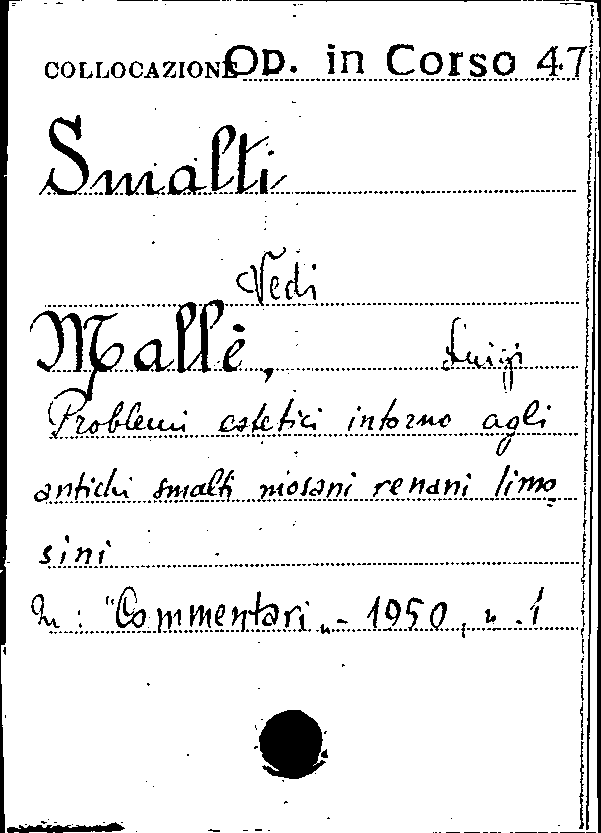 COLLOCAZIONE Op. in Corso 47
Smalti
Vedi
Mallè, Luigi
Problemi estetici intorno agli
antichi smalti mosani renani limo
sini
In: "Commentari„ - 1950, n. 1